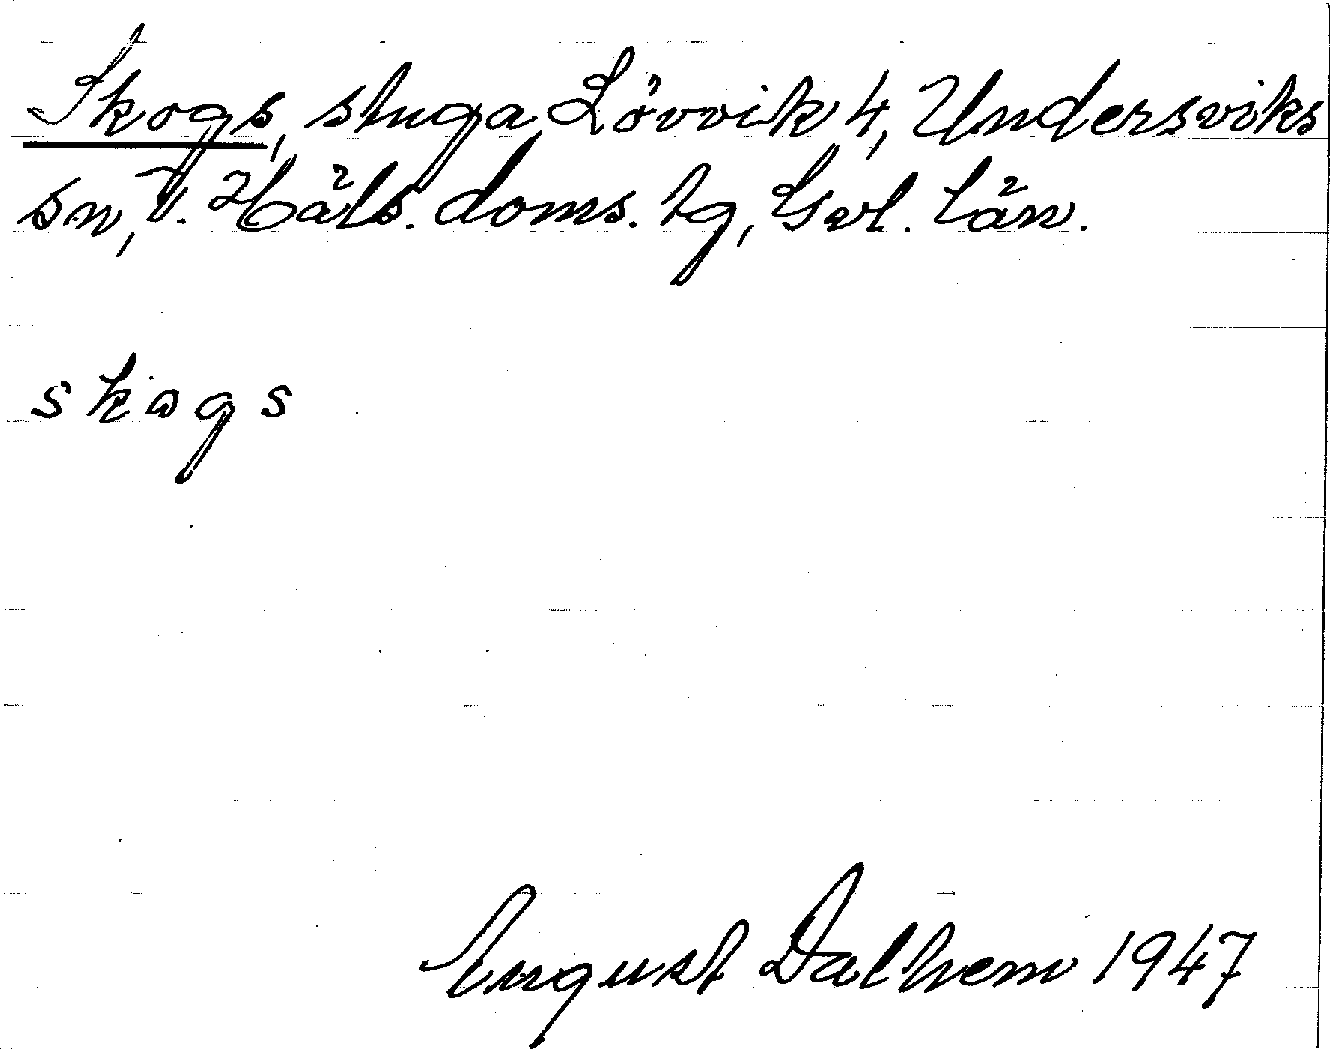 Skogs, stuga, Lövvik 4, Undersviks
sn, V. Häls. doms. tg, Gvl. län.
skogs
August Dalhem 1947